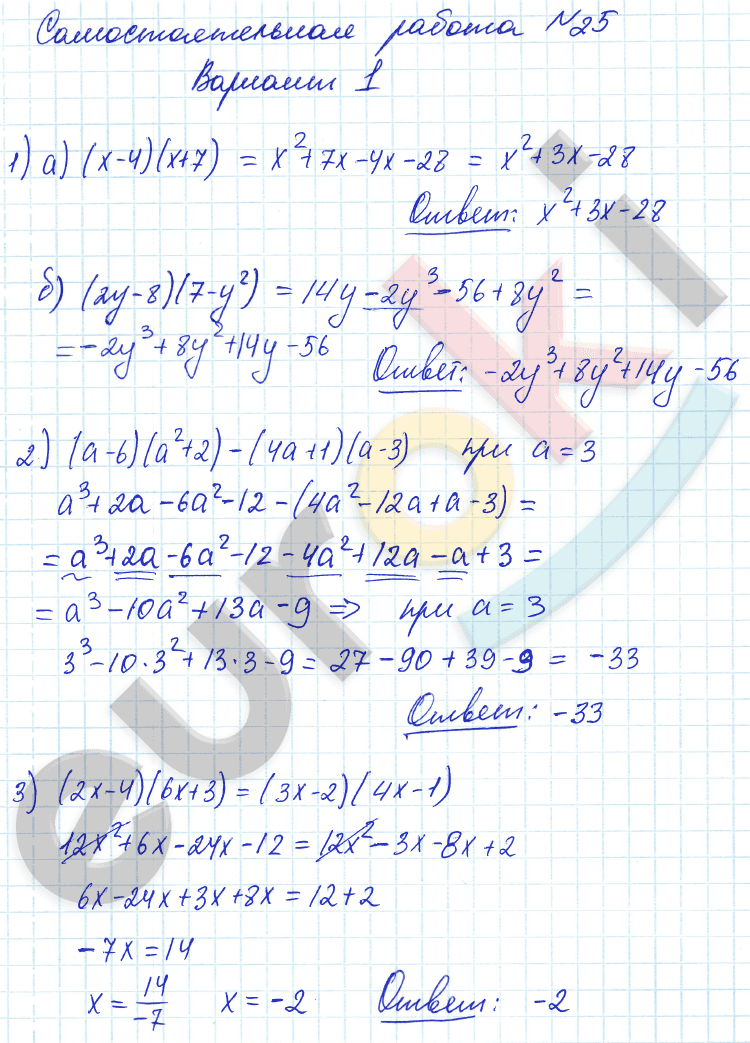 Самостоятельная работа №25
Вариант 1
1) а) (x-4)(x+7) = x²+7x-4x-28 = x²+3x-28
Ответ: x²+3x-28
б) (2y-8)(7-y²) = 14y-2y³-56+8y² =
=-2y³+8y²+14y-56 Ответ: -2y³+8y²+14y-56
2) (a-6)(a²+2)-(4a+1)(a-3) при a=3
a³+2a-6a²-12-(4a²-12a+a-3) =
= a³+2a-6a²-12-4a²+12a-a+3 =
= a³-10a²+13a-9 => при a=3
3³-10·3²+13·3-9 = 27-90+39-9 = -33
Ответ: -33
3) (2x-4)(6x+3) = (3x-2)(4x-1)
12x²+6x-24x-12 = 12x²-3x-8x+2
6x-24x+3x+8x = 12+2
-7x = 14
x = 14/-7 x = -2 Ответ: -2
euroki